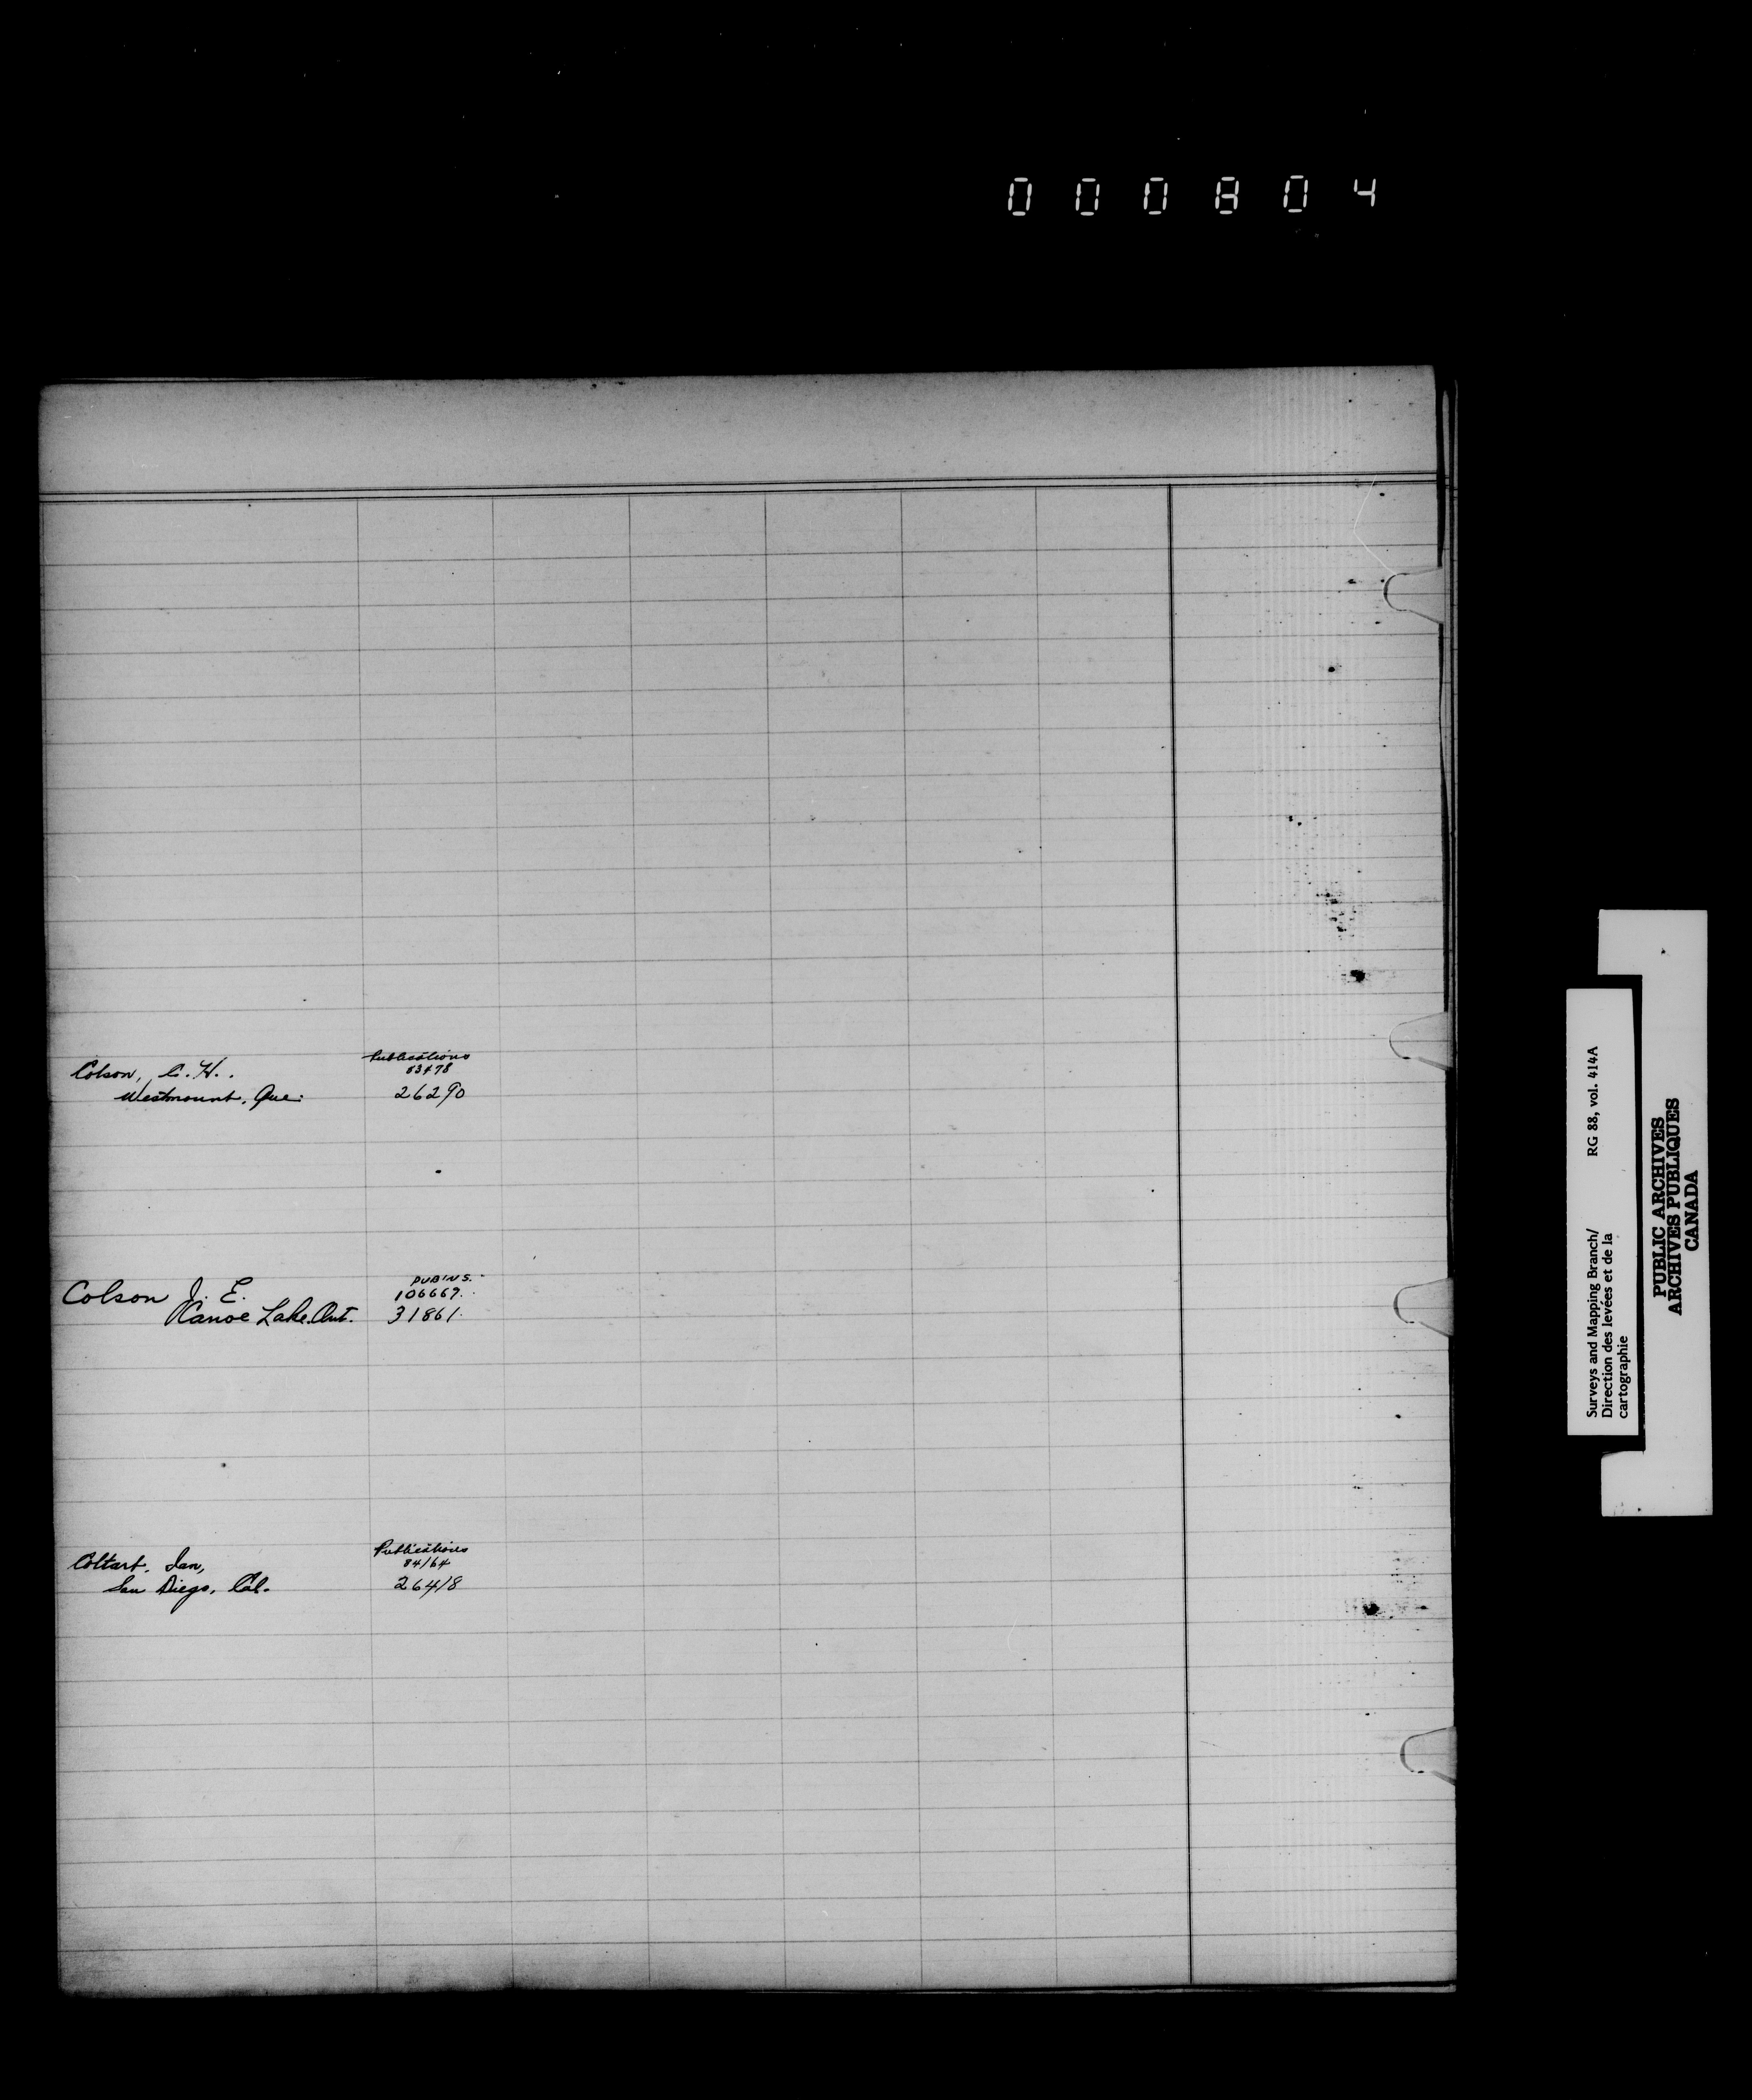 000804
Colson, C. H.
Westmount, Que.
Publications
83478
26290
Colson J. E.
Canoe Lake. Ont.
PUB'NS.
106667.
31861.
Coltart, Ian,
San Diego, Cal.
Publications
84164
26418
Surveys and Mapping Branch/ RG 88, vol. 414A
Direction des levées et de la
cartographie
PUBLIC ARCHIVES
ARCHIVES PUBLIQUES
CANADA